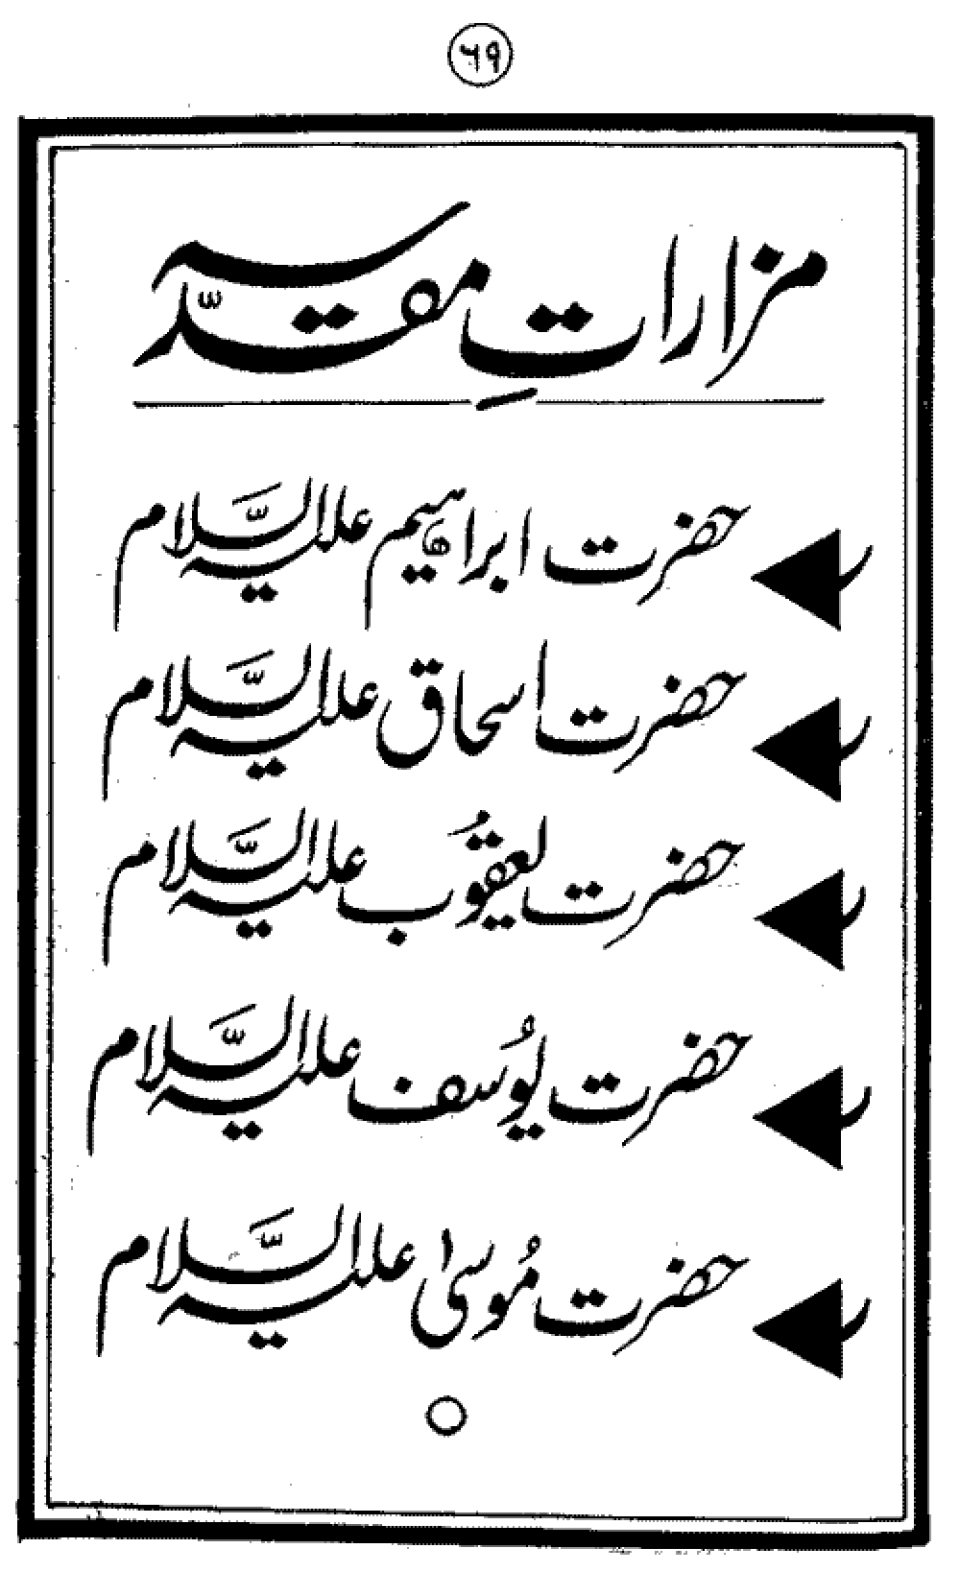 ۶۹
مزاراتِ مقدّسہ
حضرت ابراھیم علیہ السّلام
حضرت اسحاق علیہ السّلام
حضرت یعقُوب علیہ السّلام
حضرت یُوسف علیہ السّلام
حضرت مُوسیٰ علیہ السّلام